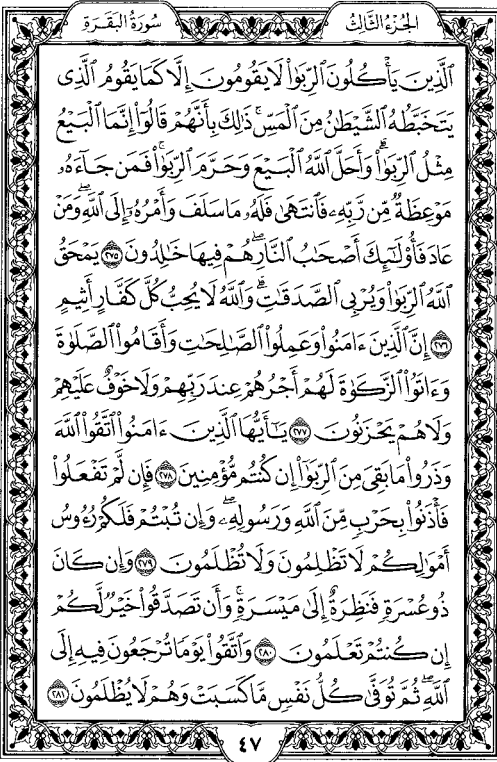 سُورَةُ البَقَرَةِ
الجُزءُ الثَّالِثُ
ٱلَّذِينَ يَأۡكُلُونَ ٱلرِّبَوٰاْ لَا يَقُومُونَ إِلَّا كَمَا يَقُومُ ٱلَّذِى
يَتَخَبَّطُهُ ٱلشَّيۡطَٰنُ مِنَ ٱلۡمَسِّۚ ذَٰلِكَ بِأَنَّهُمۡ قَالُوٓاْ إِنَّمَا ٱلۡبَيۡعُ
مِثۡلُ ٱلرِّبَوٰاْۗ وَأَحَلَّ ٱللَّهُ ٱلۡبَيۡعَ وَحَرَّمَ ٱلرِّبَوٰاْۚ فَمَن جَآءَهُۥ
مَوۡعِظَةٞ مِّن رَّبِّهِۦ فَٱنتَهَىٰ فَلَهُۥ مَا سَلَفَ وَأَمۡرُهُۥٓ إِلَى ٱللَّهِۖ وَمَنۡ
عَادَ فَأُوْلَٰٓئِكَ أَصۡحَٰبُ ٱلنَّارِۖ هُمۡ فِيهَا خَٰلِدُونَ ٢٧٥ يَمۡحَقُ
ٱللَّهُ ٱلرِّبَوٰاْ وَيُرۡبِى ٱلصَّدَقَٰتِۗ وَٱللَّهُ لَا يُحِبُّ كُلَّ كَفَّارٍ أَثِيمٍ
٢٧٦ إِنَّ ٱلَّذِينَ ءَامَنُواْ وَعَمِلُواْ ٱلصَّٰلِحَٰتِ وَأَقَامُواْ ٱلصَّلَوٰةَ
وَءَاتَوُاْ ٱلزَّكَوٰةَ لَهُمۡ أَجۡرُهُمۡ عِندَ رَبِّهِمۡ وَلَا خَوۡفٌ عَلَيۡهِمۡ
وَلَا هُمۡ يَحۡزَنُونَ ٢٧٧ يَٰٓأَيُّهَا ٱلَّذِينَ ءَامَنُواْ ٱتَّقُواْ ٱللَّهَ
وَذَرُواْ مَا بَقِىَ مِنَ ٱلرِّبَوٰٓاْ إِن كُنتُم مُّؤۡمِنِينَ ٢٧٨ فَإِن لَّمۡ تَفۡعَلُواْ
فَأۡذَنُواْ بِحَرۡبٖ مِّنَ ٱللَّهِ وَرَسُولِهِۦۖ وَإِن تُبۡتُمۡ فَلَكُمۡ رُءُوسُ
أَمۡوَٰلِكُمۡ لَا تَظۡلِمُونَ وَلَا تُظۡلَمُونَ ٢٧٩ وَإِن كَانَ
ذُو عُسۡرَةٖ فَنَظِرَةٌ إِلَىٰ مَيۡسَرَةٖۚ وَأَن تَصَدَّقُواْ خَيۡرٞ لَّكُمۡ
إِن كُنتُمۡ تَعۡلَمُونَ ٢٨٠ وَٱتَّقُواْ يَوۡمٗا تُرۡجَعُونَ فِيهِ إِلَى
ٱللَّهِۖ ثُمَّ تُوَفَّىٰ كُلُّ نَفۡسٖ مَّا كَسَبَتۡ وَهُمۡ لَا يُظۡلَمُونَ ٢٨١
٤٧